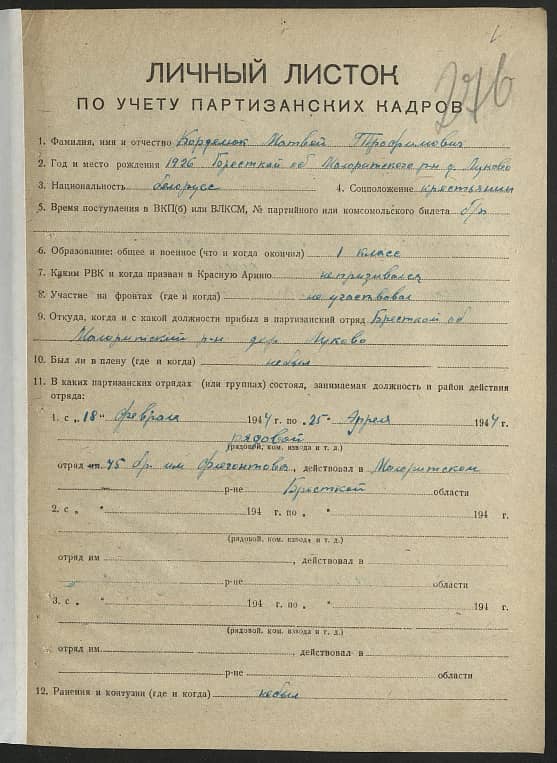 276
ЛИЧНЫЙ ЛИСТОК
ПО УЧЕТУ ПАРТИЗАНСКИХ КАДРОВ
1. Фамилия, имя и отчество Корделюк Матвей Трофимович
2. Год и место рождения 1926 Бресткой об Малоритского р-н д. Луково
3. Национальность белорусс 4. Соцположение крестьянин
5. Время поступления в ВКП(б) или ВЛКСМ, № партийного или комсомольского билета б/п
6. Образование: общее и военное (что и когда окончил) 1 класс
7. Каким РВК и когда призван в Красную Армию непризывался
8. Участие на фронтах (где и когда) не участвовал
9. Откуда, когда и с какой должности прибыл в партизанский отряд Бресткой об
Малоритский р-н дер. Луково
10. Был ли в плену (где и когда) небыл
11. В каких партизанских отрядах (или группах) состоял, занимаемая должность и район действия
отряда:
1. с „18" Февраля 1944 г. по „25" Апреля 1944 г.
рядовой
(рядовой, ком. взвода и т. д.)
отряд им. 45 бр. им Флегонтова, действовал в Малоритском
р-не Бресткой области
2. с „ " 194 г. по „ " 194 г.
(рядовой, ком. взвода и т. д.)
отряд им , действовал в
р-не области
3. с „ " 194 г. по „ " 194 г.
(рядовой, ком. взвода и т. д.)
отряд им , действовал в
р-не области
12. Ранения и контузии (где и когда) небыл